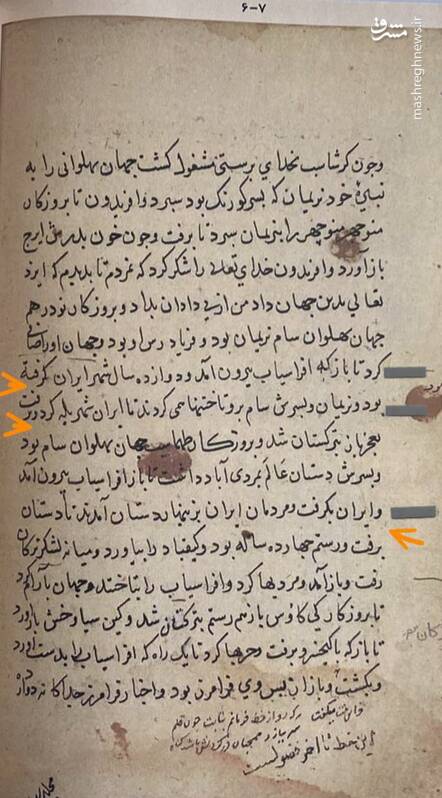 ۶-۷
مشرق
mashreghnews.ir
وچون کرشاسب بخدای پرستی مشغول کشت جهان پهلوانی را به
نبیرهٔ خود نریمان که پسر کورنک بود سپرد و افریدون تا بروزکار
منوچهر منوچهر را بنریمان سپرد تا برفت وچون خون پدرش ایرج
بازآورد و افریدون خدای تعالی را شکر کرد که نمردم تا بدیدم که ایزد
تعالی بدین جهان داد من از بی دادان بداد و بروزکار نوذر هم
جهان پهلوان سام نریمان بود و فریادرس او بود و جهان او راصافی
کرد تا باز که افراسیاب بیرون آمد و دوازده سال شهر ایران کرفته
بود و نریمان و پسرش سام برو تاختنها می کردند تا ایران شهر یله کرد و رفت
بعجز باز بترکستان شد و بروزکار طهماسب جهان پهلوان سام بود
و پسرش دستان عالم بمردی آباد داشت تا باز افراسیاب بیرون آمد
و ایران بکرفت و مردمان ایران بزینهار دستان آمدند تا دستان
برفت و رستم چهارده ساله بود و کیقباد را بیاورد و میان لشکر ترکان
رفت و باز آمد و مردیها کرد و افراسیاب را بتاختند و جهان بآرام کرد
تا بروزکار کی کاوس بازهم رستم بترکستان شد و کین سیاوخش بازآورد
تا باز که با کیخسرو برفت و حربها کرد تا یک راه که افراسیاب را بدست آورد
و بکشت و باز از پس وی فرامرز بود و اخبار فرامرز جداکانه دوازده
این خط تا آخر